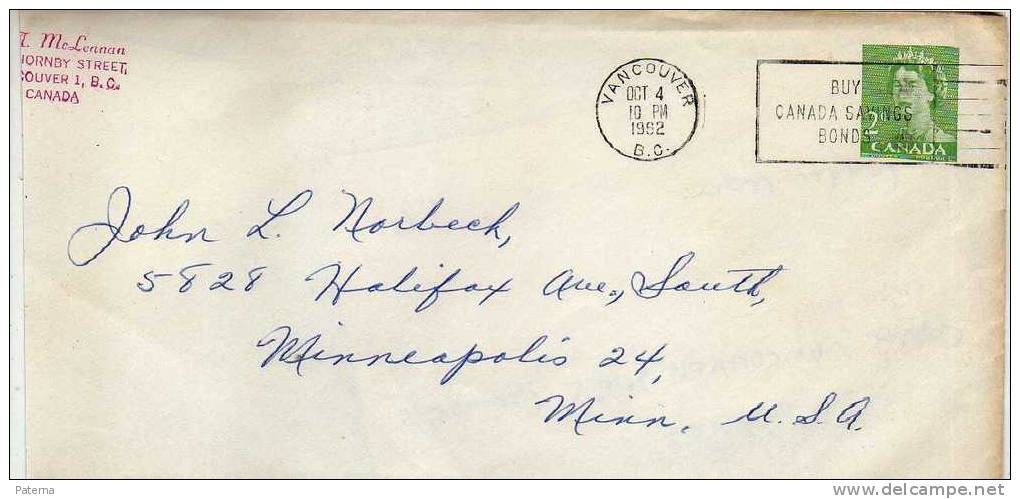 McLennan
HORNBY STREET,
COUVER 1, B.C.
CANADA
VANCOUVER
OCT 4
10 PM
1962
B.C.
BUY
CANADA SAVINGS
BONDS
2
CANADA
John L. Norbeck,
5828 Halifax Ave., South,
Minneapolis 24,
Minn, U.S.A.
Paterna
www.delcampe.net